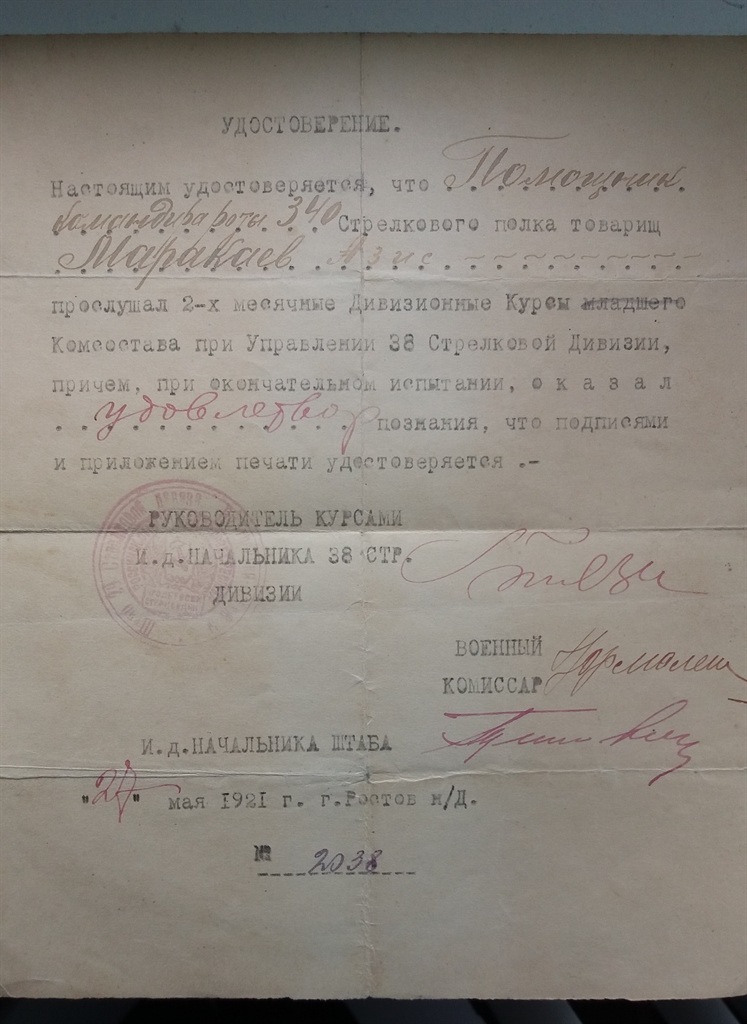 УДОСТОВЕРЕНИЕ.
Настоящим удостоверяется, что Помощник
командира роты 340 Стрелкового полка товарищ
Маракаев Азис
прослушал 2-х месячные Дивизионные Курсы младшего
Комсостава при Управлении 38 Стрелковой Дивизии,
причем, при окончательном испытании, оказал
удовлетвор познания, что подписями
и приложением печати удостоверяется .-
РУКОВОДИТЕЛЬ КУРСАМИ
И.д.НАЧАЛЬНИКА 38 СТР.
ДИВИЗИИ
ВОЕННЫЙ
КОМИССАР
И.д.НАЧАЛЬНИКА ШТАБА
"27" мая 1921 г. г.Ростов н/Д.
№ 2038